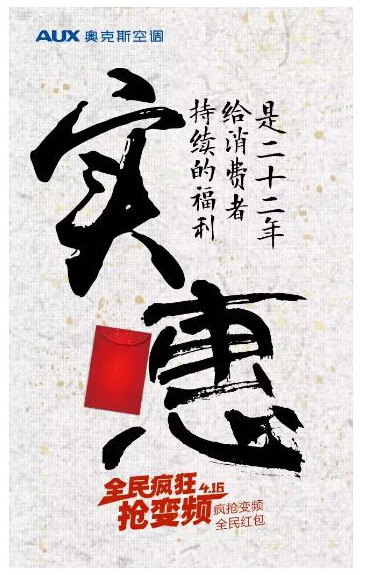 AUX 奥克斯空调
实惠
是二十二年
给消费者
持续的福利
全民疯狂 4.16
抢变频
疯抢变频
全民红包